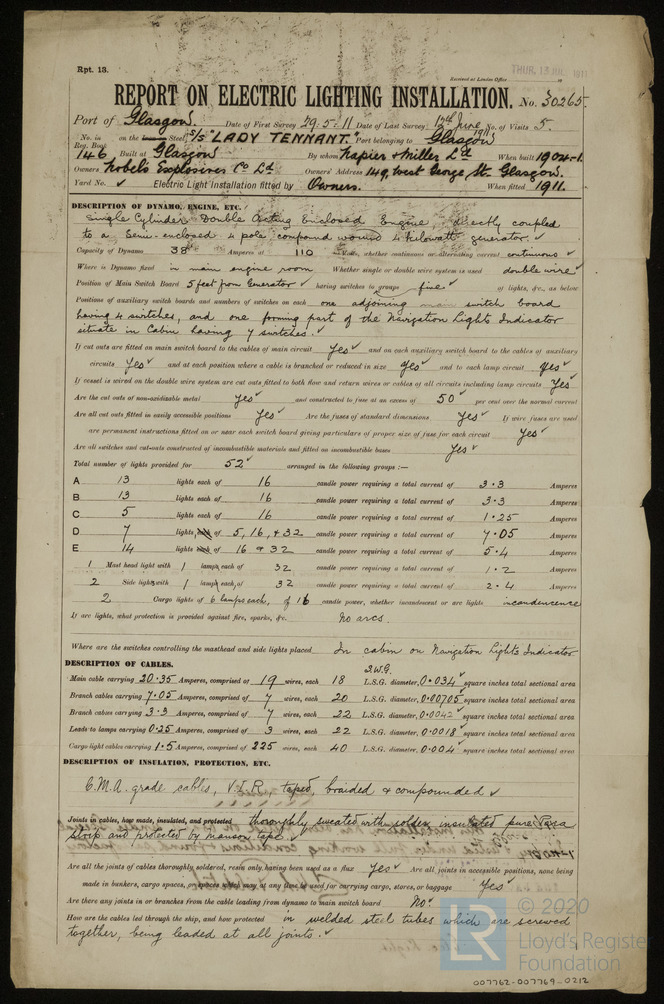 Rpt. 13.
Received at London Office
THUR. 13 JUL 1911
REPORT ON ELECTRIC LIGHTING INSTALLATION. No. 30265
Port of Glasgow Date of First Survey 29.5.11 Date of Last Survey 12th June 1911 No. of Visits 5.
No. in Reg. Book 146 on the Steel S/S "LADY TENNANT." Port belonging to Glasgow
Built at Glasgow By whom Napier & Miller Ld When built 1904-1
Owners Nobel's Explosives Co Ld Owners' Address 149, West George St. Glasgow.
Yard No. ✓ Electric Light Installation fitted by Owners. When fitted 1911.
DESCRIPTION OF DYNAMO, ENGINE, ETC.
Single Cylinder Double Acting Enclosed Engine, directly coupled
to a Semi-enclosed 4 pole compound wound 4 kilowatt generator. ✓
Capacity of Dynamo 38 Amperes at 110 Volts, whether continuous or alternating current continuous ✓
Where is Dynamo fixed in main engine room Whether single or double wire system is used double wire ✓
Position of Main Switch Board 5 feet from Generator ✓ having switches to groups five ✓ of lights, &c., as below
Positions of auxiliary switch boards and numbers of switches on each one adjoining main switch board
having 4 switches, and one forming part of the Navigation Lights Indicator
situate in Cabin having 7 switches. ✓
If cut outs are fitted on main switch board to the cables of main circuit Yes ✓ and on each auxiliary switch board to the cables of auxiliary
circuits Yes ✓ and at each position where a cable is branched or reduced in size Yes ✓ and to each lamp circuit Yes ✓
If vessel is wired on the double wire system are cut outs fitted to both flow and return wires or cables of all circuits including lamp circuits Yes ✓
Are the cut outs of non-oxidizable metal Yes ✓ and constructed to fuse at an excess of 50 ✓ per cent over the normal current
Are all cut outs fitted in easily accessible positions Yes ✓ Are the fuses of standard dimensions Yes ✓ If wire fuses are used
are permanent instructions fitted on or near each switch board giving particulars of proper size of fuse for each circuit Yes ✓
Are all switches and cut-outs constructed of incombustible materials and fitted on incombustible bases Yes ✓
Total number of lights provided for 52 ✓ arranged in the following groups :—
A 13 lights each of 16 candle power requiring a total current of 3.3 Amperes
B 13 lights each of 16 candle power requiring a total current of 3.3 Amperes
C 5 lights each of 16 candle power requiring a total current of 1.25 Amperes
D 7 lights each of 5, 16, & 32 candle power requiring a total current of 7.05 Amperes
E 14 lights each of 16 & 32 candle power requiring a total current of 5.4 Amperes
1 Mast head light with 1 lamp each of 32 candle power requiring a total current of 1.2 Amperes
2 Side lights with 1 lamp each of 32 candle power requiring a total current of 2.4 Amperes
2 Cargo lights of 6 lamps each, of 16 candle power, whether incandescent or arc lights incandescence
If arc lights, what protection is provided against fire, sparks, &c. No arcs.
Where are the switches controlling the masthead and side lights placed In cabin on Navigation Lights Indicator
DESCRIPTION OF CABLES. S.W.G.
Main cable carrying 20.35 Amperes, comprised of 19 wires, each 18 L.S.G. diameter, 0.034 ✓ square inches total sectional area
Branch cables carrying 7.05 Amperes, comprised of 7 wires, each 20 L.S.G. diameter, 0.00705 ✓ square inches total sectional area
Branch cables carrying 3.3 Amperes, comprised of 7 wires, each 22 L.S.G. diameter, 0.0042 ✓ square inches total sectional area
Leads to lamps carrying 0.25 Amperes, comprised of 3 wires, each 22 L.S.G. diameter, 0.0018 ✓ square inches total sectional area
Cargo light cables carrying 1.5 Amperes, comprised of 225 wires, each 40 L.S.G. diameter, 0.004 ✓ square inches total sectional area
DESCRIPTION OF INSULATION, PROTECTION, ETC.
C.M.A. grade cables, V.I.R. taped braided & compounded ✓
Joints in cables, how made, insulated, and protected thoroughly sweated with solder, insulated pure Para
strip and protected by manson tape. ✓
Are all the joints of cables thoroughly soldered, resin only having been used as a flux Yes ✓ Are all joints in accessible positions, none being
made in bunkers, cargo spaces, or spaces which may at any time be used for carrying cargo, stores, or baggage Yes ✓
Are there any joints in or branches from the cable leading from dynamo to main switch board No.
How are the cables led through the ship, and how protected in welded steel tubes which are screwed
together, being leaded at all joints. ✓
© 2020
LR
Lloyd's Register
Foundation
007762-007769-0212